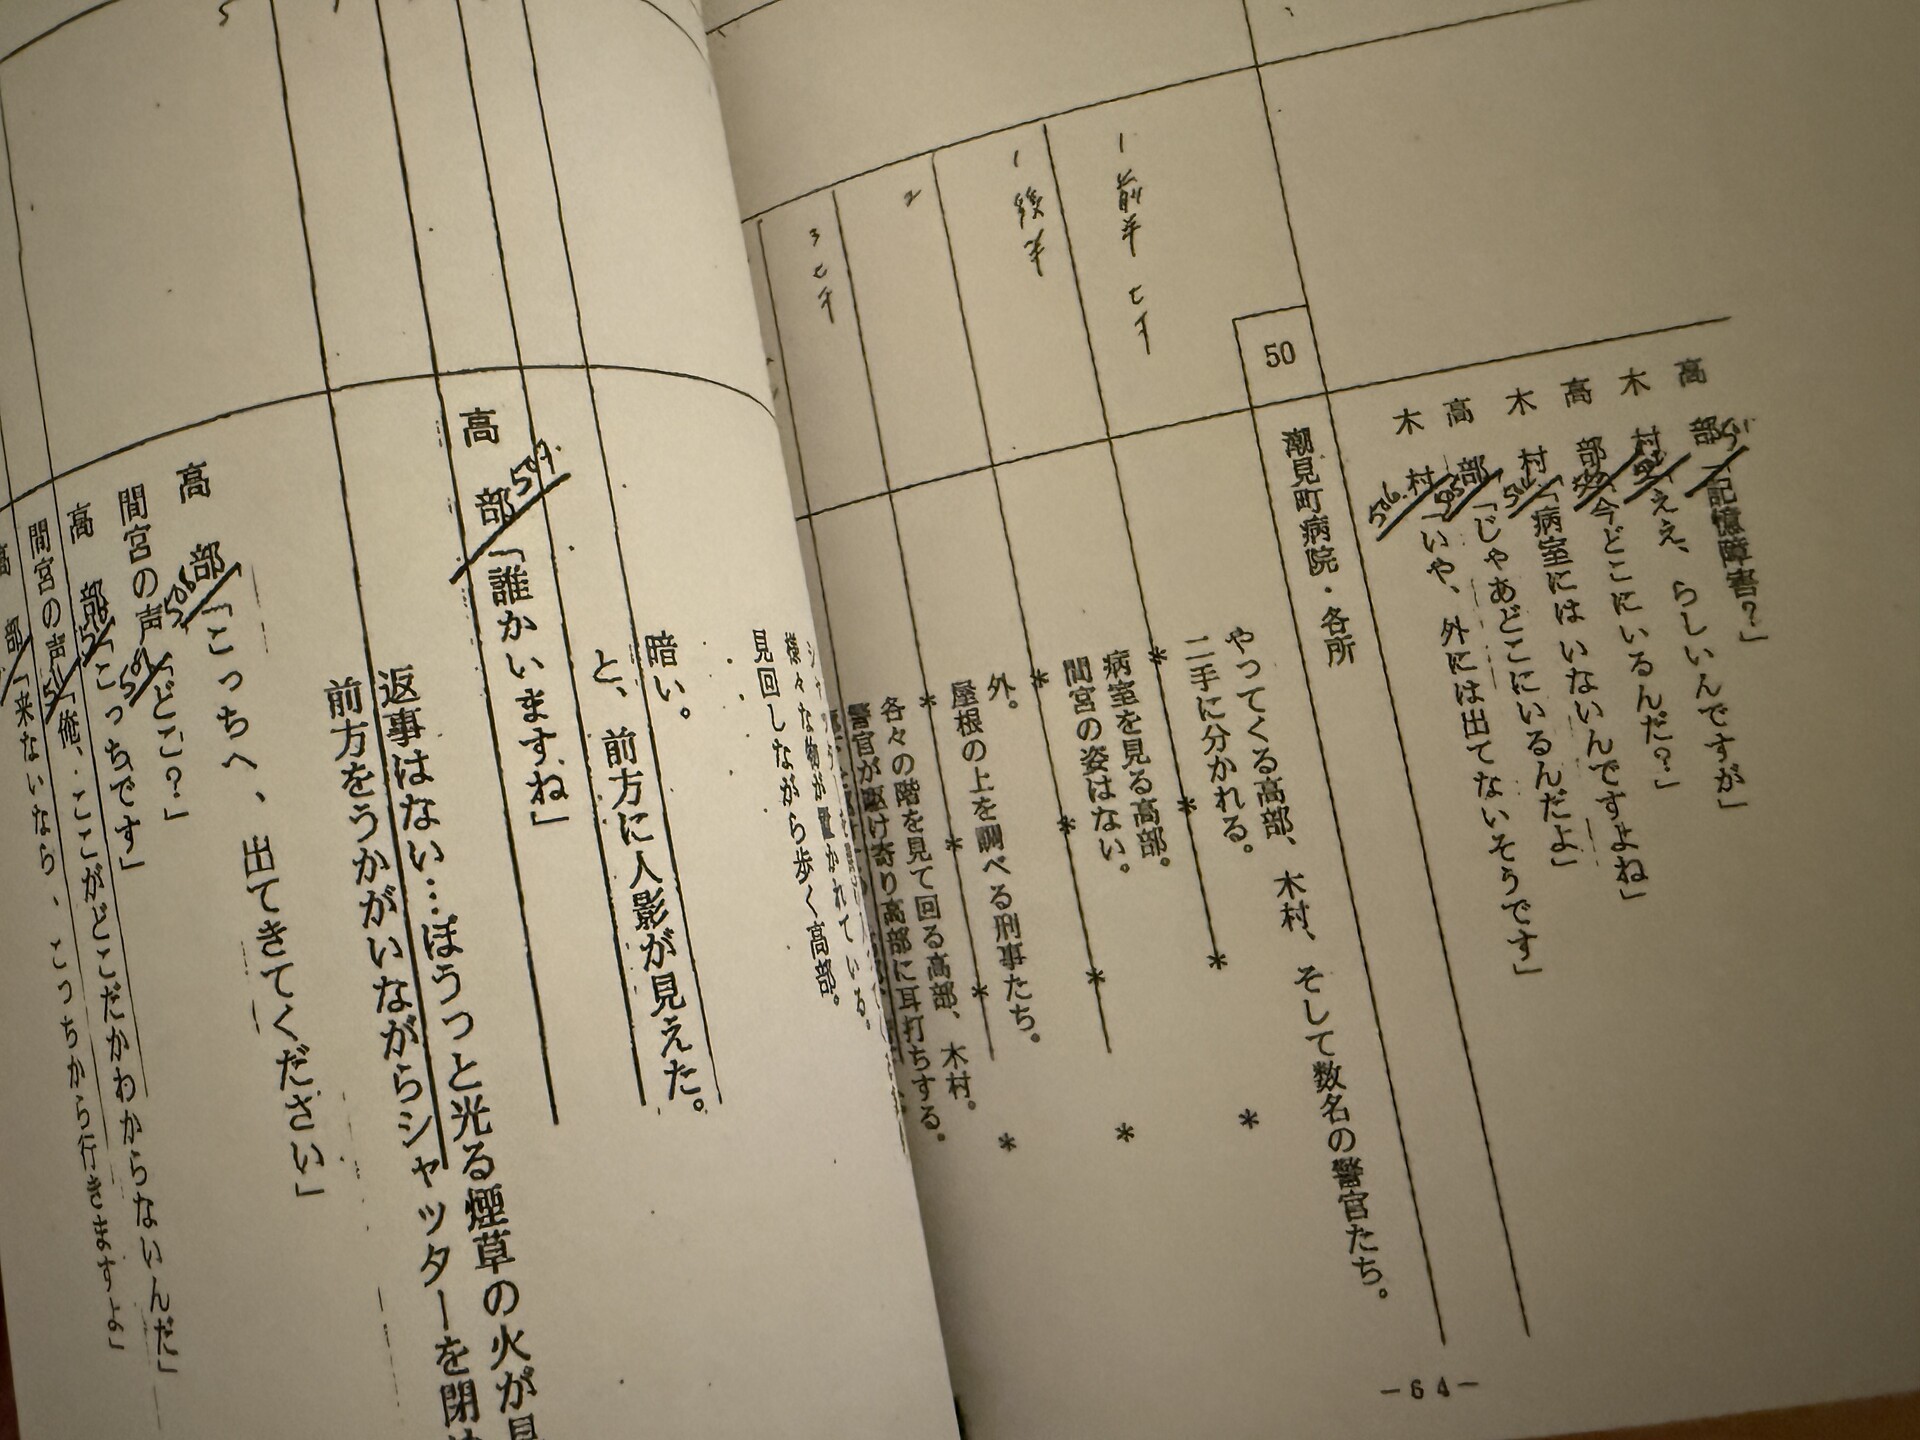 高部「記憶障害?」
木村「ええ、らしいんですが」
高部「今どこにいるんだ?」
木村「病室にはいないんですよね」
高部「じゃあどこにいるんだよ」
木村「いや、外には出てないそうです」
50
潮見町病院・各所
やってくる高部、木村、そして数名の警官たち。
二手に分かれる。
* * * *
病室を見る高部。
間宮の姿はない。
* * * *
外。
屋根の上を調べる刑事たち。
* * * *
各々の階を見て回る高部、木村。
警官が駆け寄り高部に耳打ちする。
1前半
1後半
2
3
506
-64-
様々な物が置かれている。
見回しながら歩く高部。
暗い。
と、前方に人影が見えた。
高部「誰かいますね」
507
返事はない…ぼうっと光る煙草の火が見
前方をうかがいながらシャッターを閉
高部「こっちへ、出てきてください」
間宮の声「どこ?」
高部「こっちです」
間宮の声「俺、ここがどこだかわからないんだ」
高部「来ないなら、こっちから行きますよ」
5